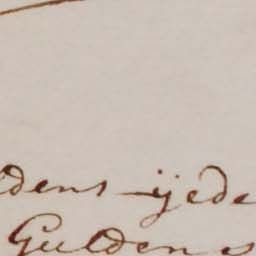 dens ijede
Guldens